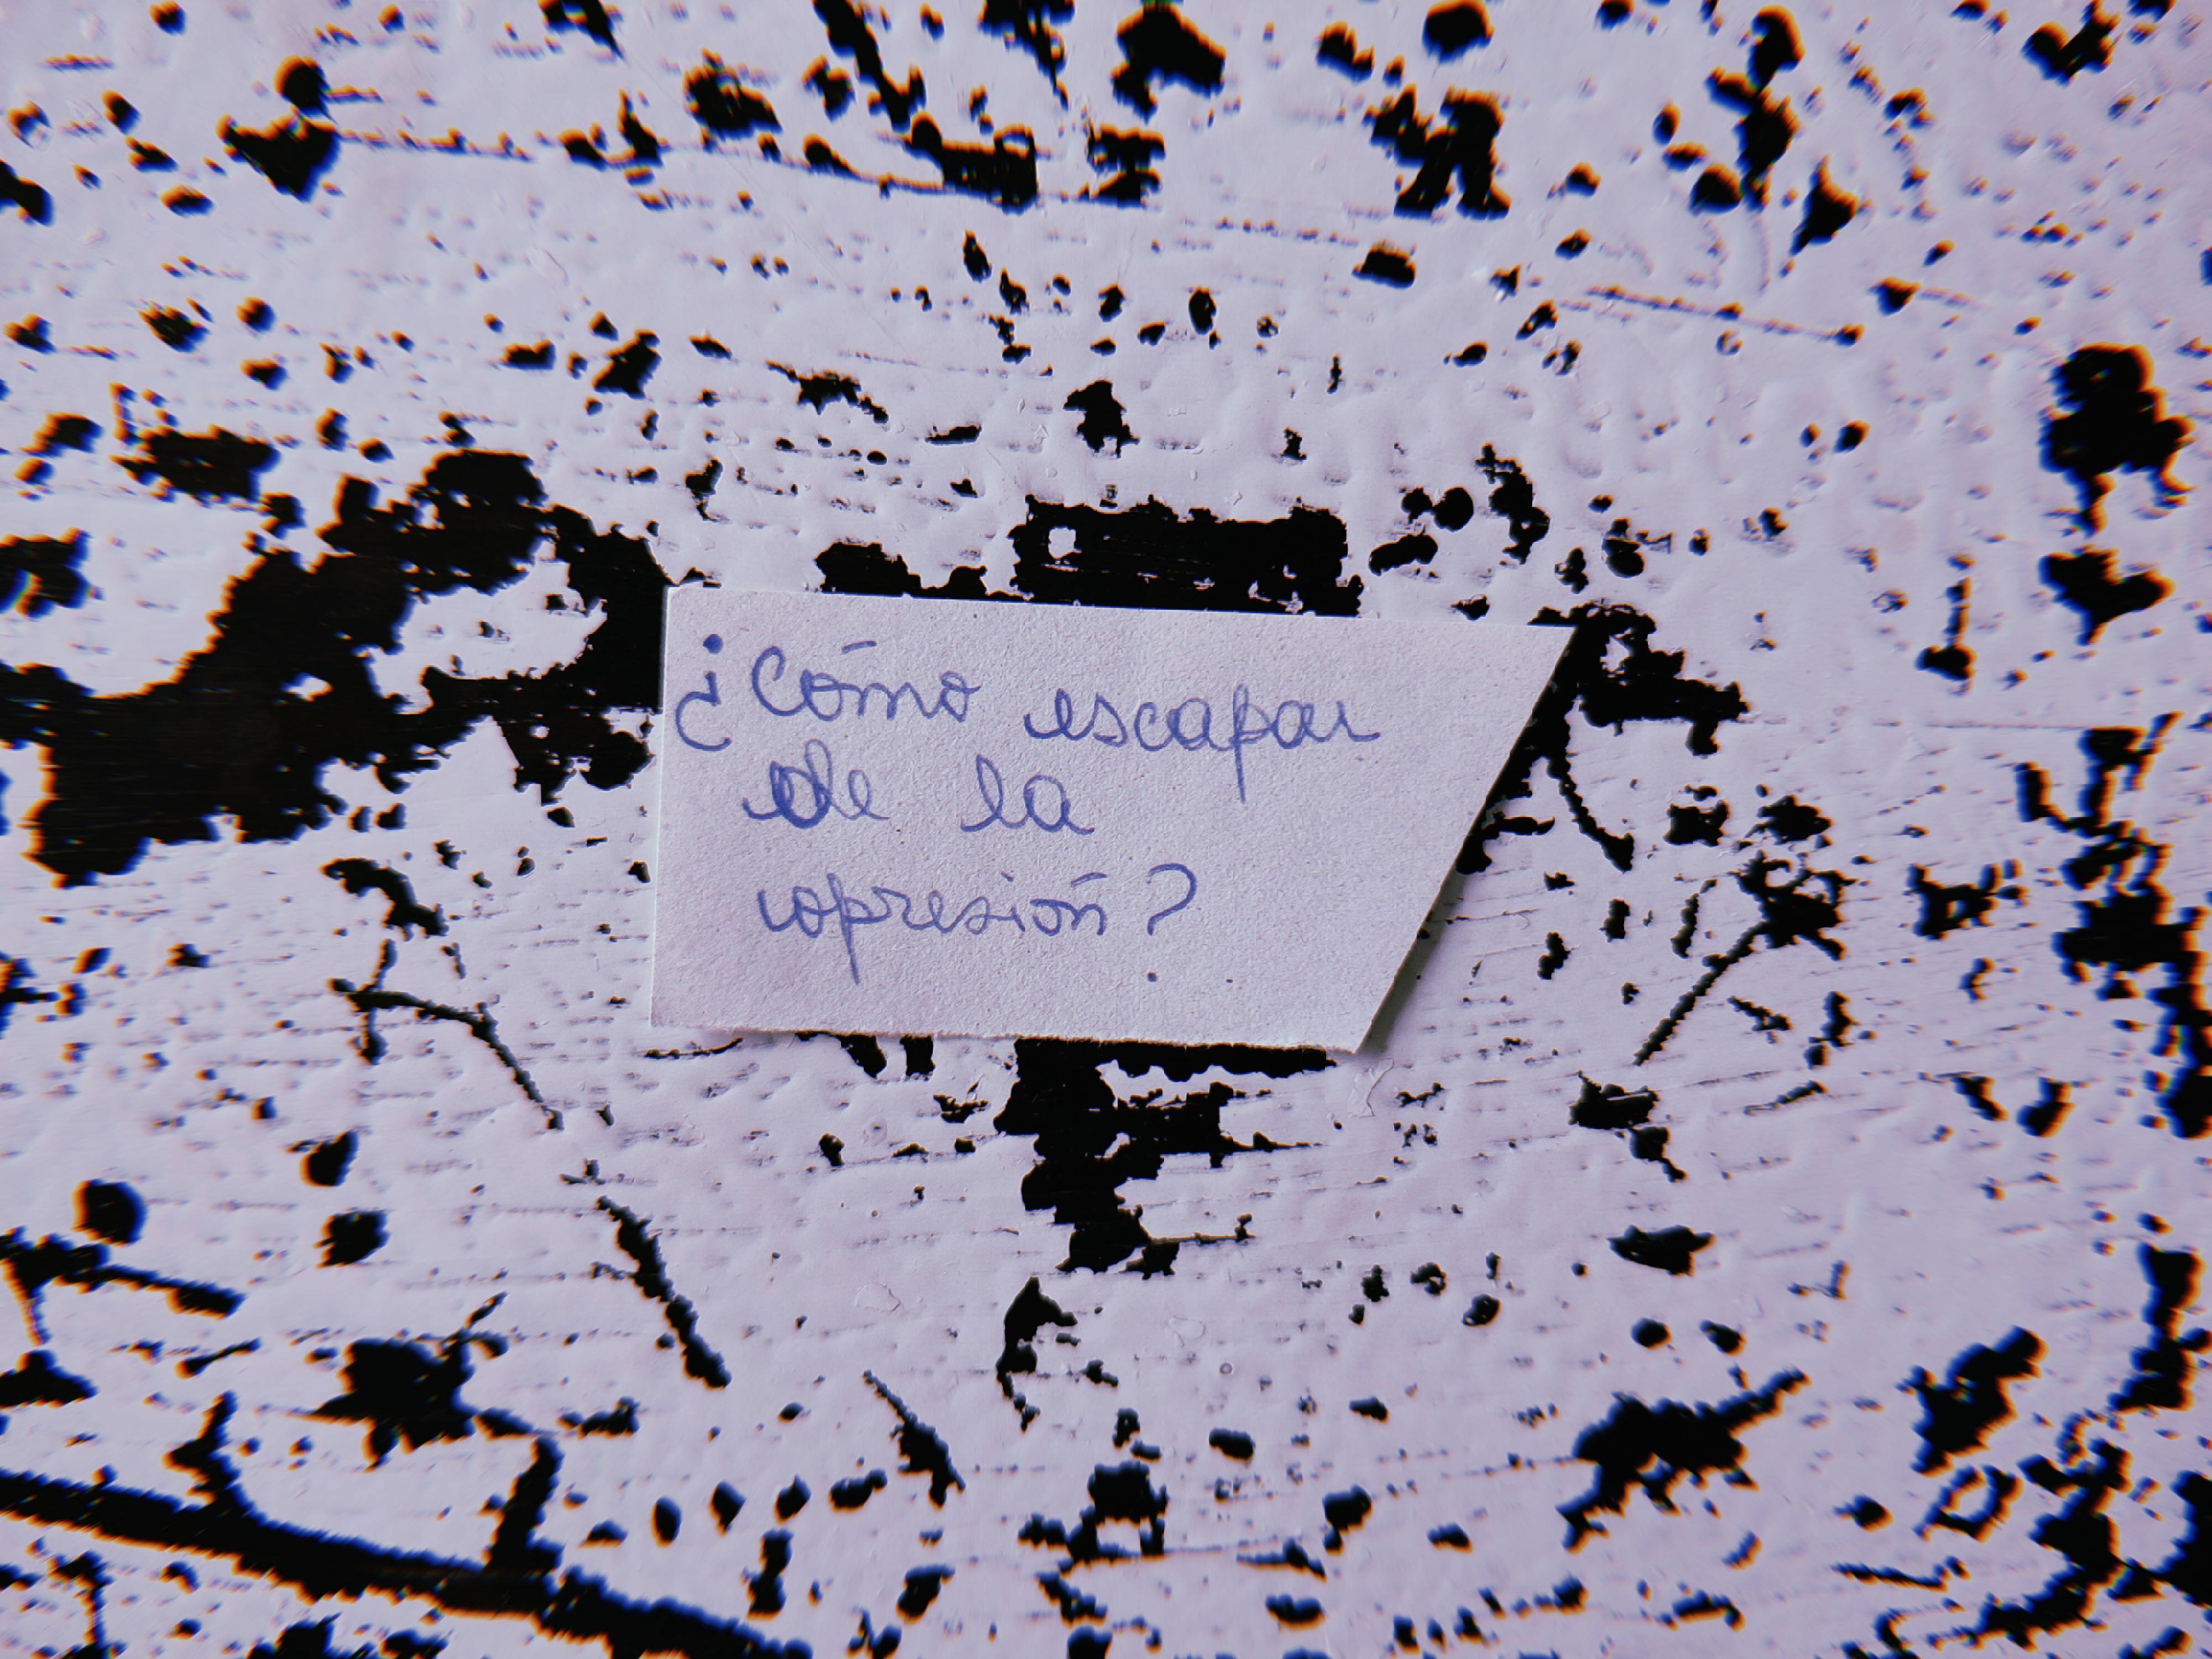 ¿Cómo escapar
de la
opresión?